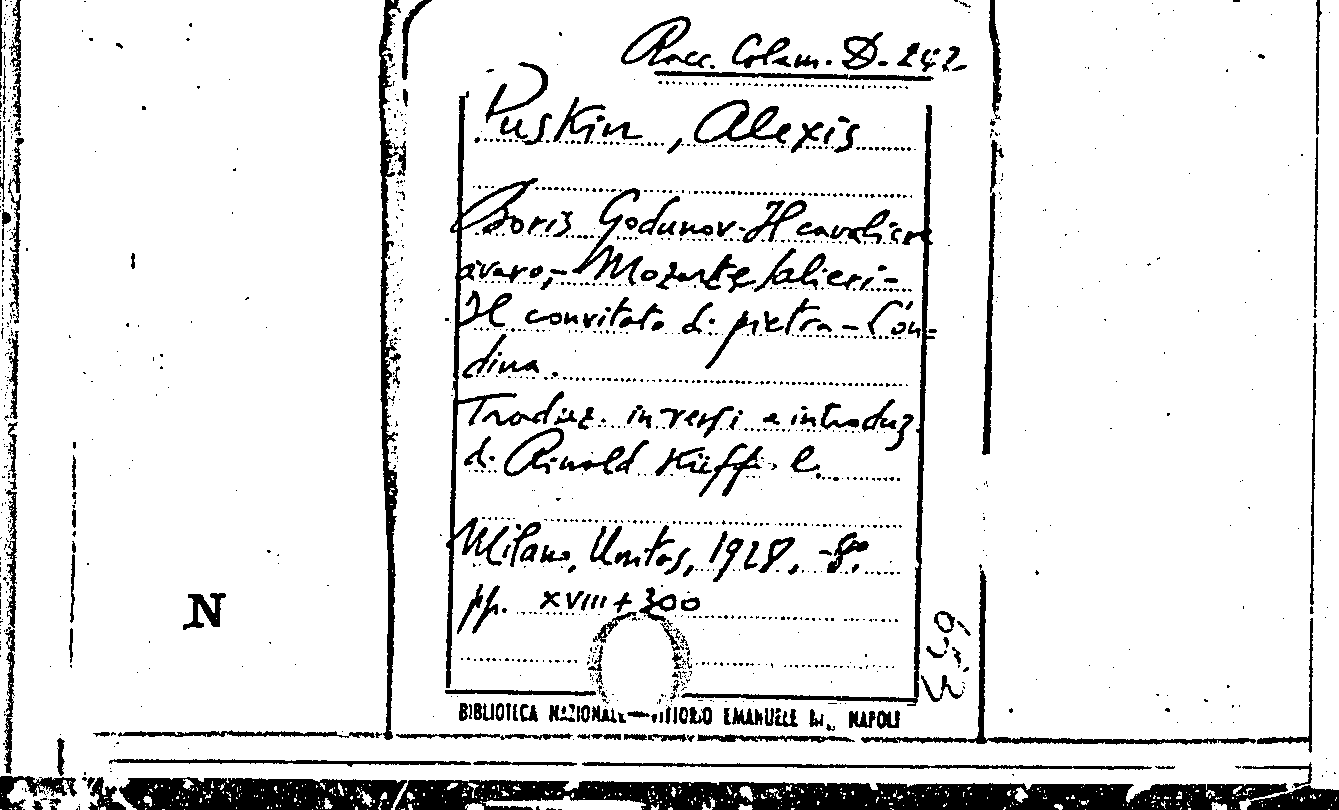 Racc. Colam. D. 242
Puskin, Alexis
Boris Godunov - Il cavaliere
avaro, - Mozart e Salieri -
Il convitato di pietra - L'On=
dina.
Traduz. in versi e introduz.
di Rinold Küfferle.
Milano, Unitas, 1928, -8°.
pp. XVIII + 300
N
BIBLIOTECA NAZIONALE VITTORIO EMANUELE NAPOLI